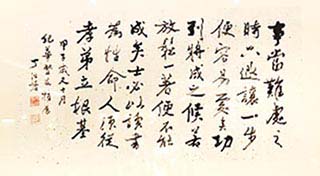 事當難處之
時只退讓一步
便容易處矣功
到將成之候若
放鬆一著便不能
成矣士必以詩書
為性命人須從
孝弟立根基
甲子歲又十月
紀華
丁治磐